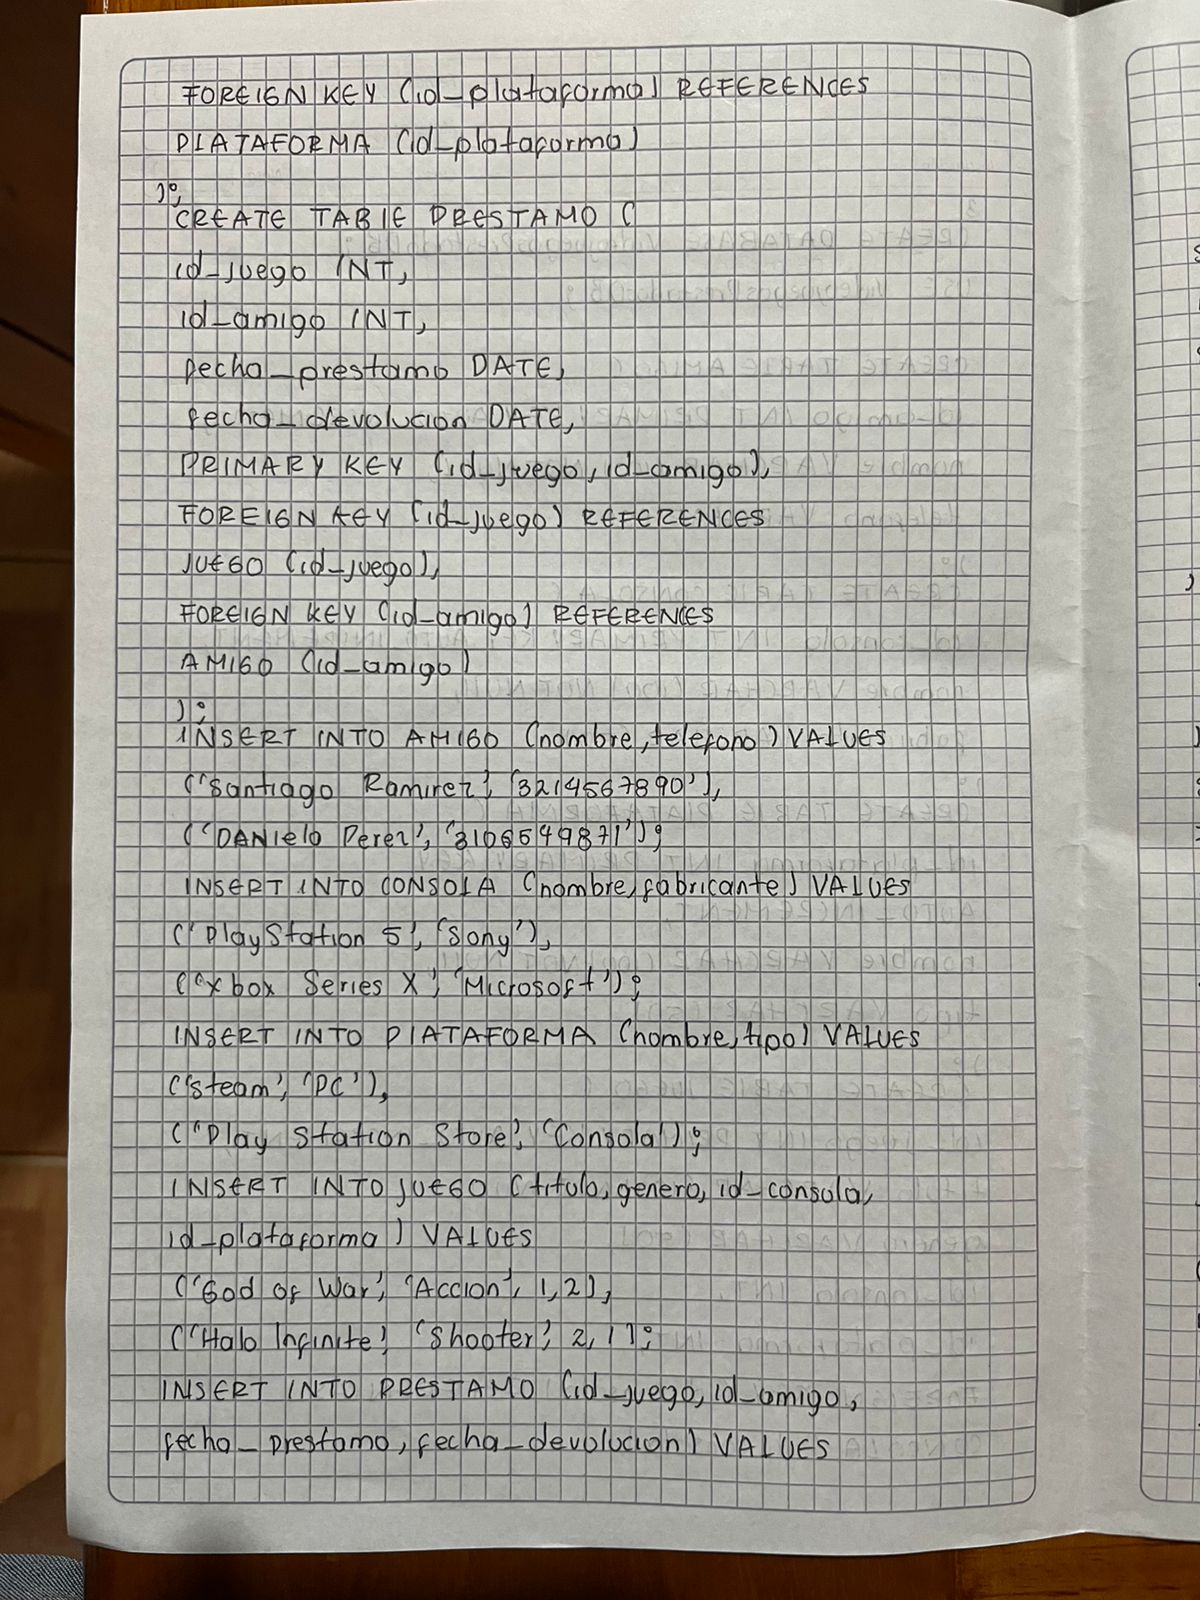 FOREIGN KEY (id_plataforma) REFERENCES
PLATAFORMA (id_plataforma)
);
CREATE TABLE PRESTAMO (
id_juego INT,
id_amigo INT,
fecha_prestamo DATE,
fecha_devolucion DATE,
PRIMARY KEY (id_juego, id_amigo),
FOREIGN KEY (id_juego) REFERENCES
JUEGO (id_juego),
FOREIGN KEY (id_amigo) REFERENCES
AMIGO (id_amigo)
);
INSERT INTO AMIGO (nombre, telefono) VALUES
('Santiago Ramirez', '3214567890'),
('DANIELA Perez', '3106549871');
INSERT INTO CONSOLA (nombre, fabricante) VALUES
('PlayStation 5', 'Sony'),
('Xbox Series X', 'Microsoft');
INSERT INTO PLATAFORMA (nombre, tipo) VALUES
('Steam', 'PC'),
('Play Station Store', 'Consola');
INSERT INTO JUEGO (titulo, genero, id_consola,
id_plataforma) VALUES
('God of War', 'Accion', 1, 2),
('Halo Infinite', 'Shooter', 2, 1);
INSERT INTO PRESTAMO (id_juego, id_amigo,
fecha_prestamo, fecha_devolucion) VALUES